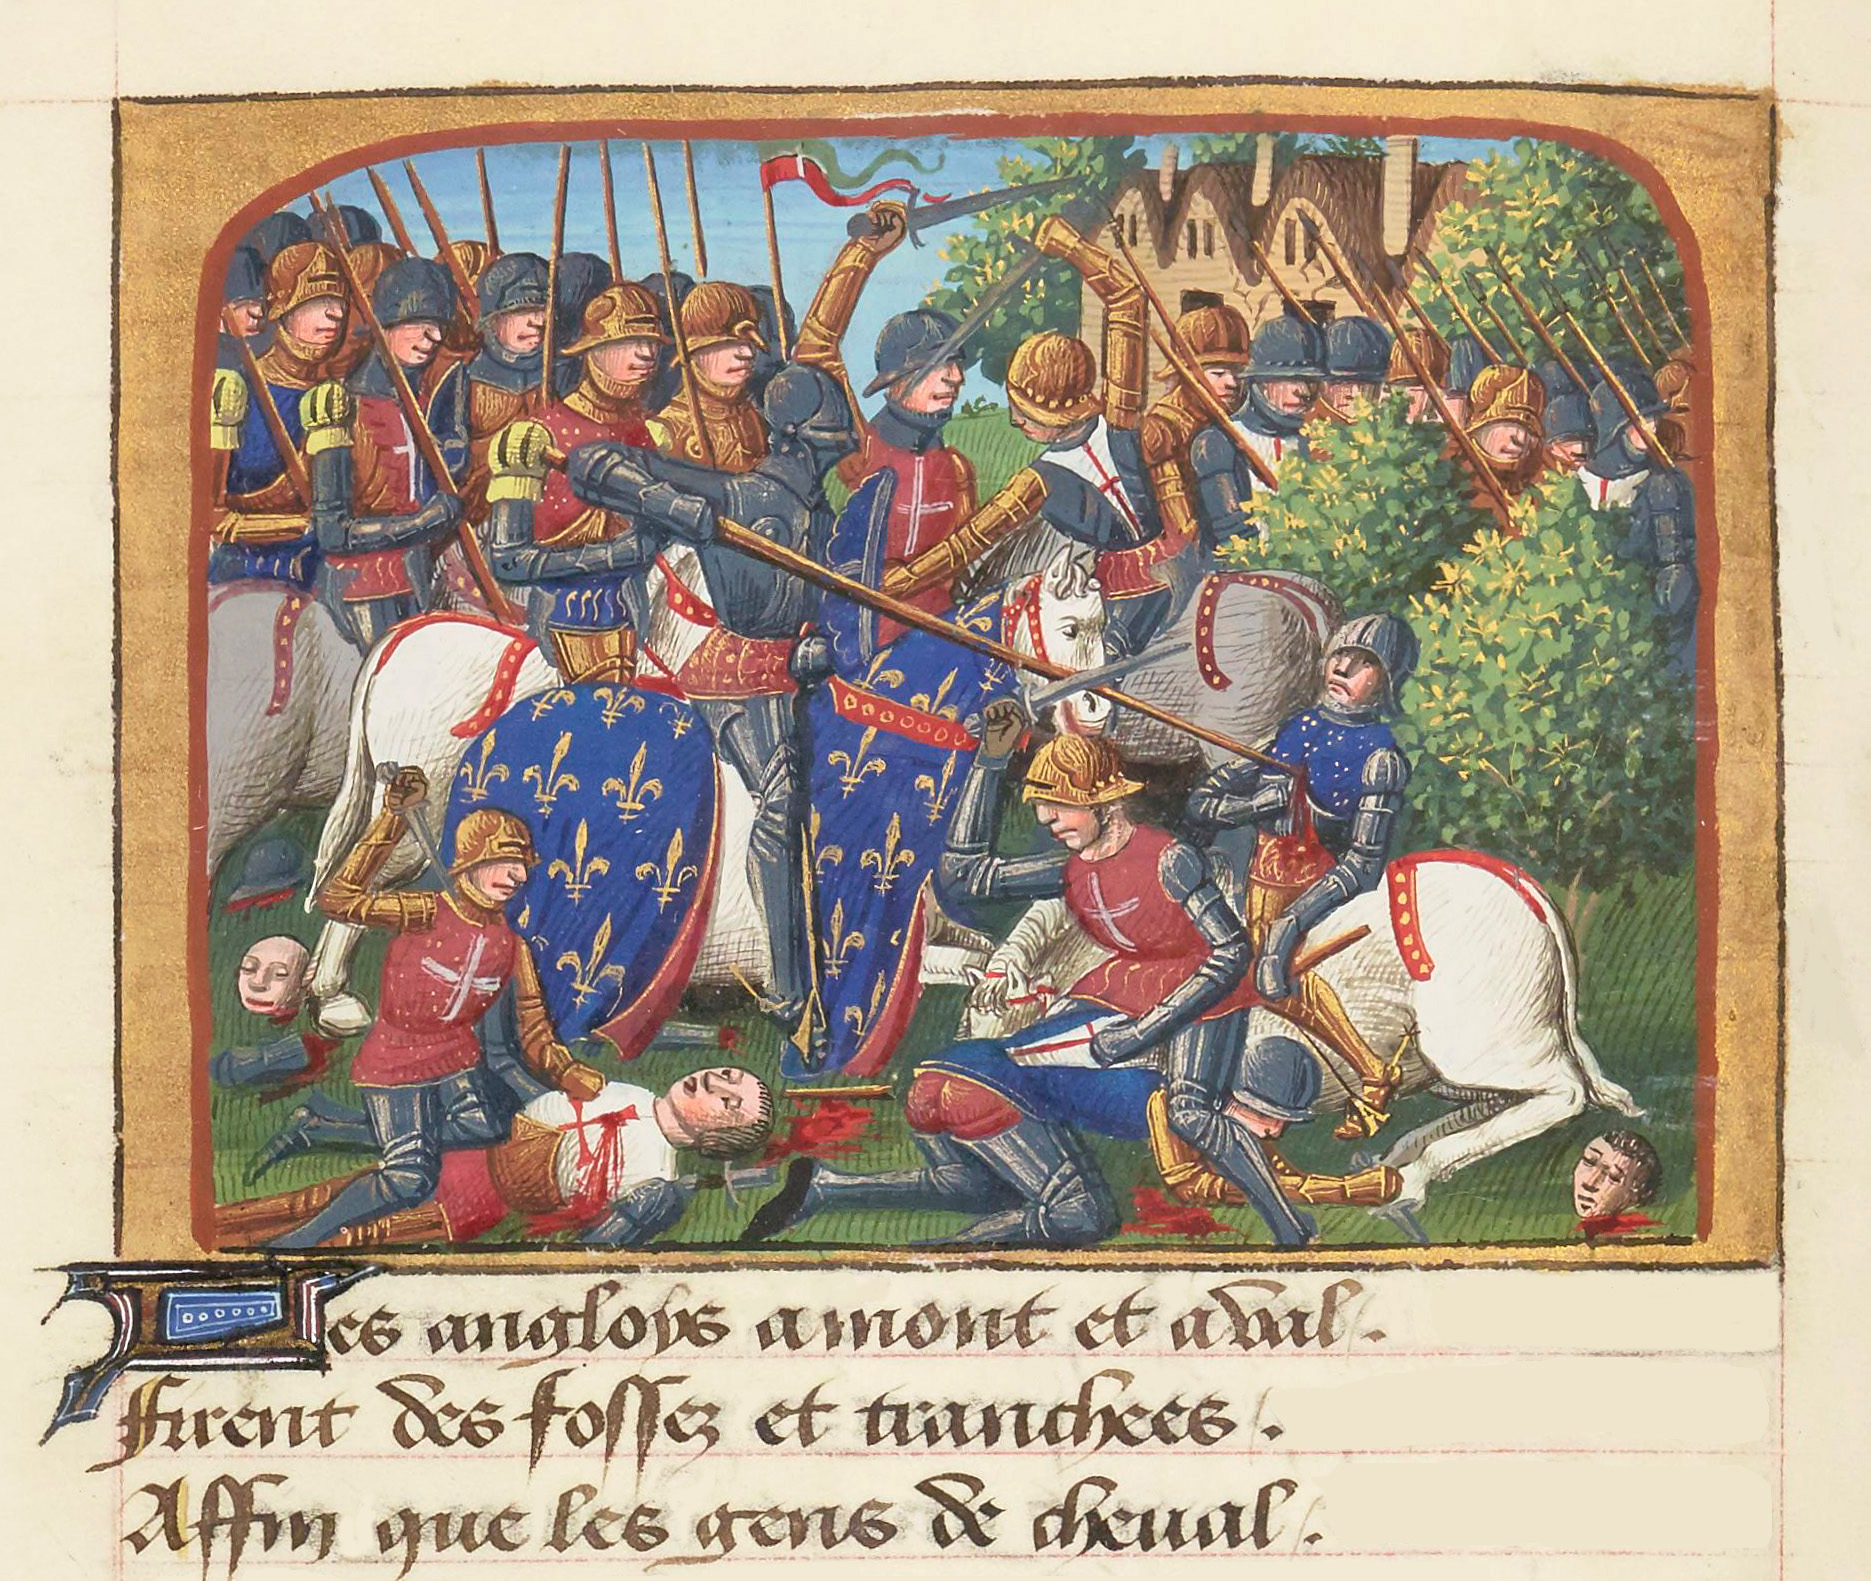 Les angloys amont et aval.
Firent des fossez et tranchees.
Affin que les gens de cheval.